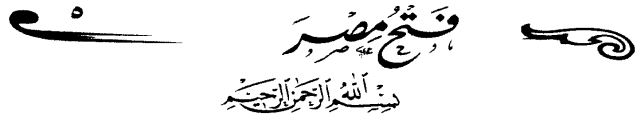 فَتْحُ مِصْرَ
٥
بِسْمِ اللهِ الرَّحْمٰنِ الرَّحِيْمِ